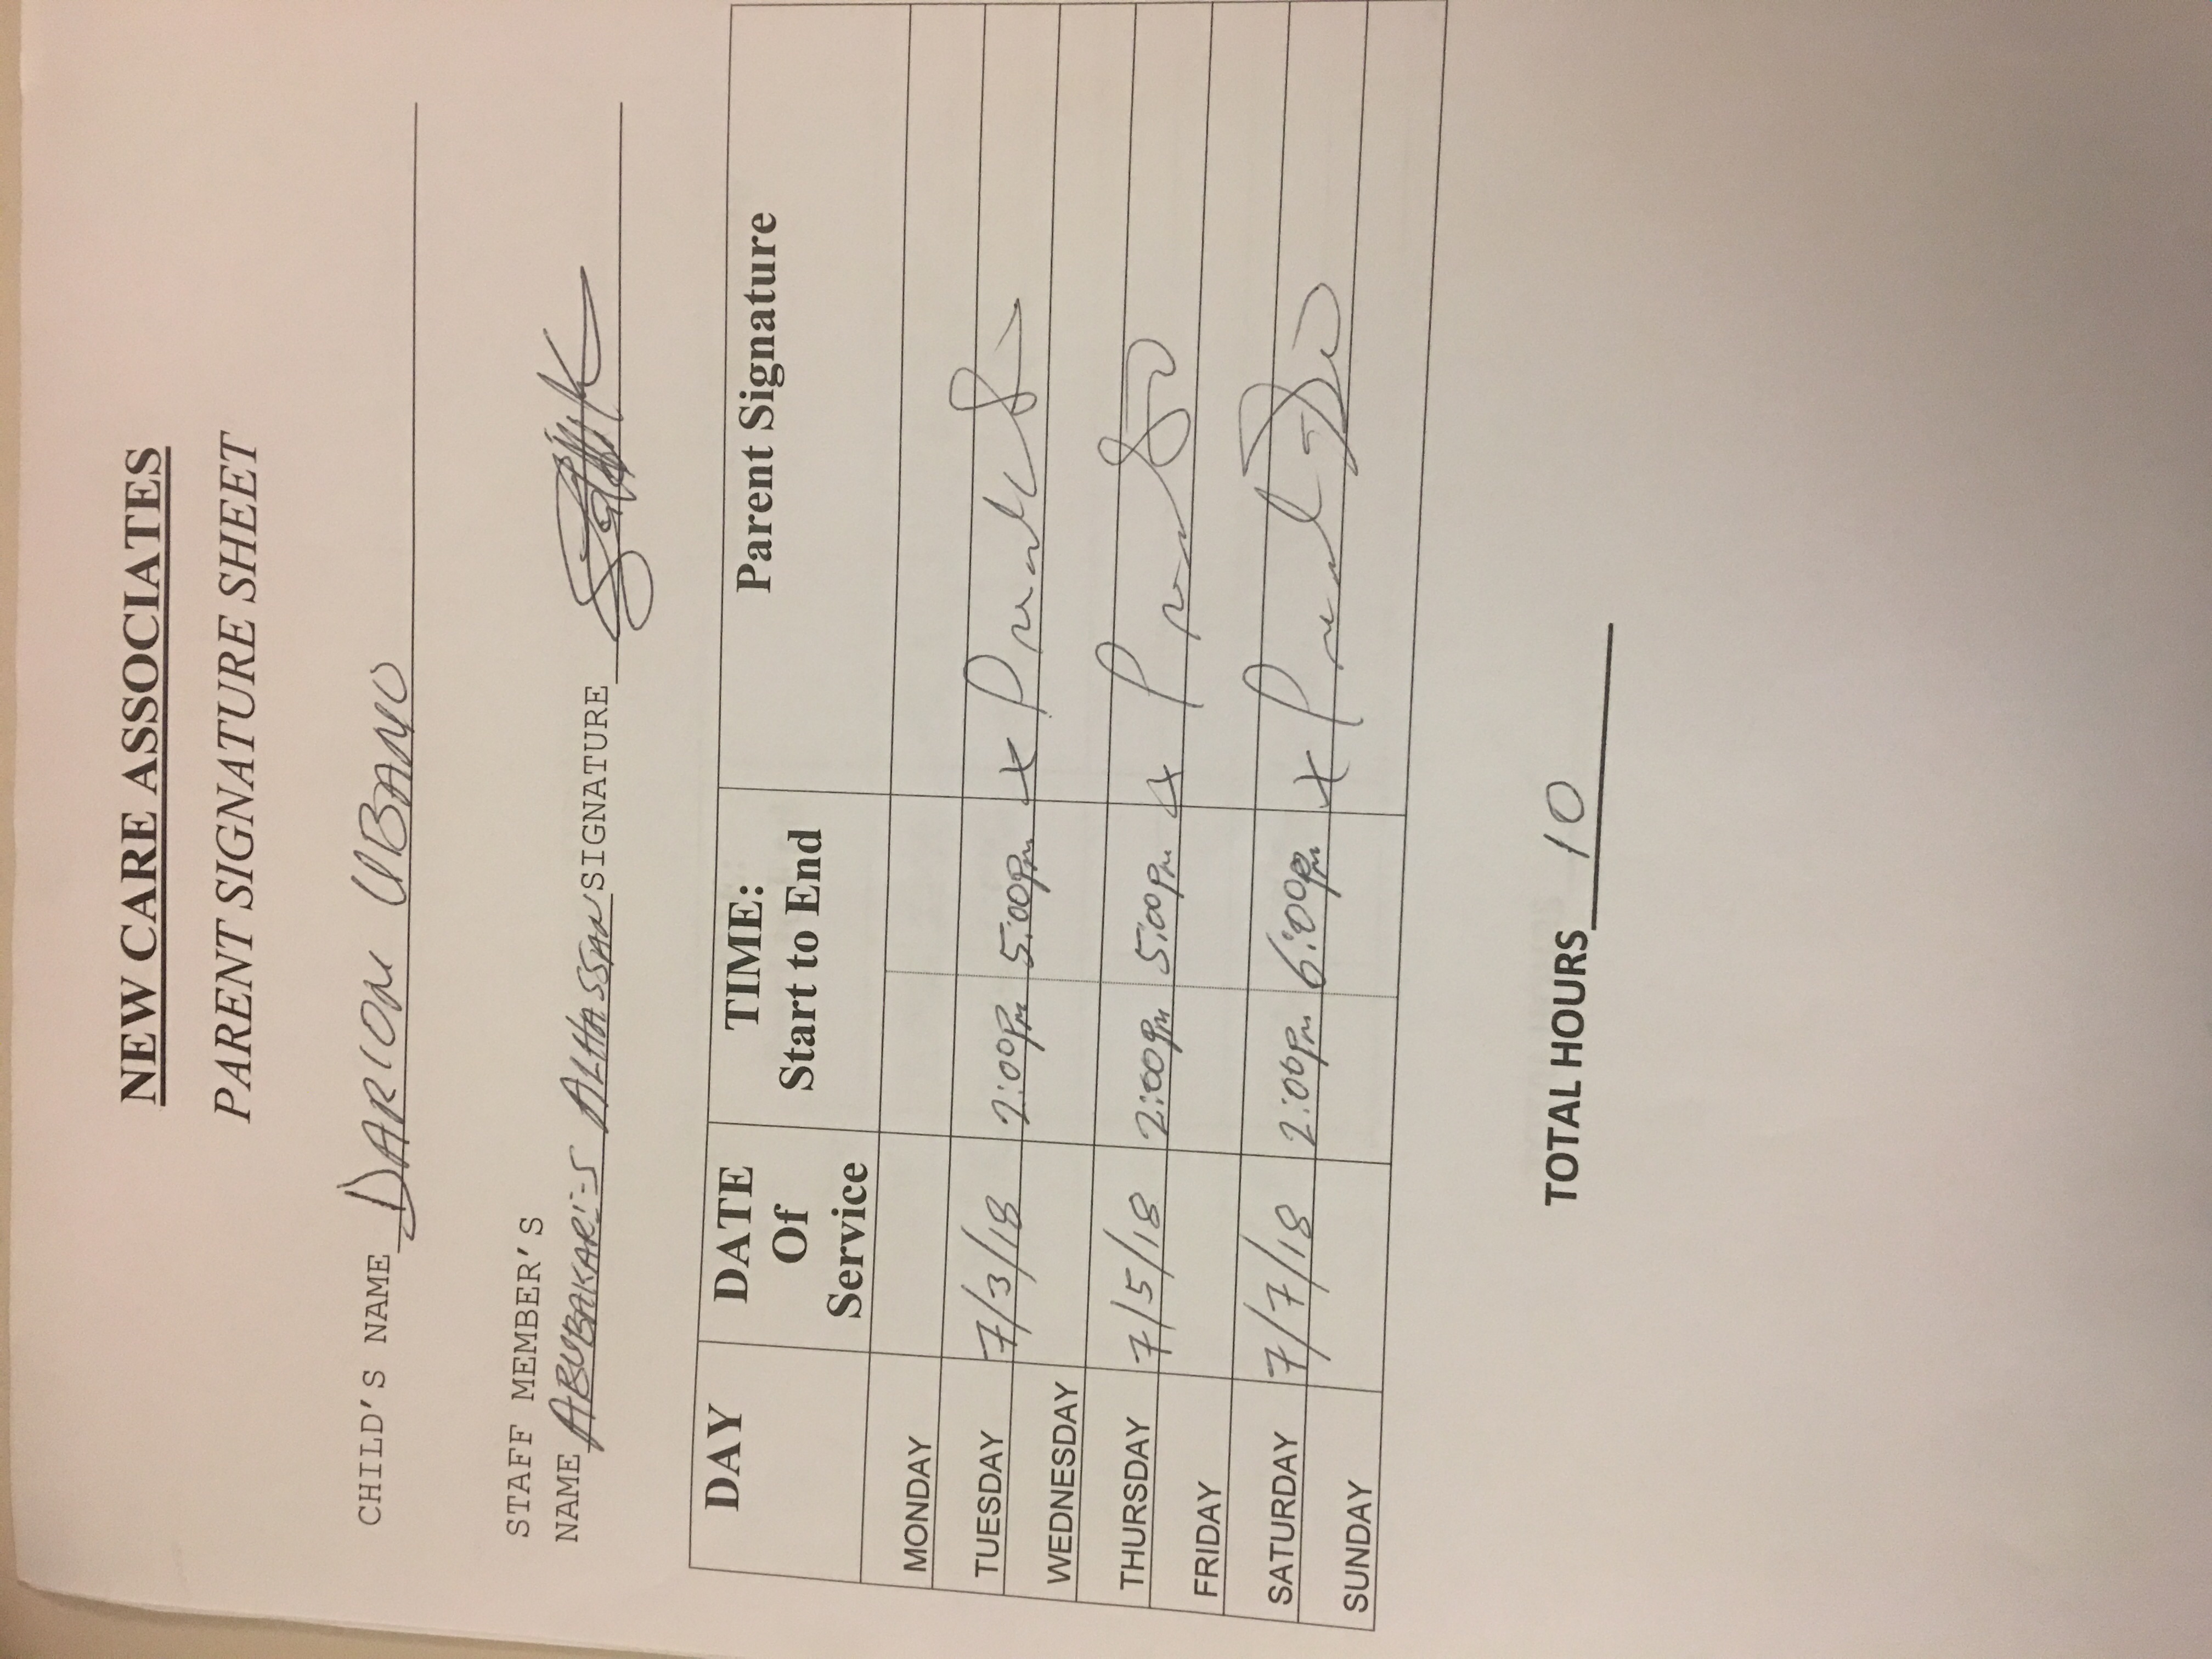 NEW CARE ASSOCIATES
PARENT SIGNATURE SHEET
CHILD'S NAME DARION UBANO
STAFF MEMBER'S
NAME ALHASSAN SIGNATURE
DAY DATE Of Service TIME: Start to End Parent Signature
MONDAY
TUESDAY 7/3/18 2:00pm 5:00pm x
WEDNESDAY
THURSDAY 7/5/18 2:00pm 5:00pm x
FRIDAY
SATURDAY 7/7/18 2:00pm 6:00pm x
SUNDAY
TOTAL HOURS 10